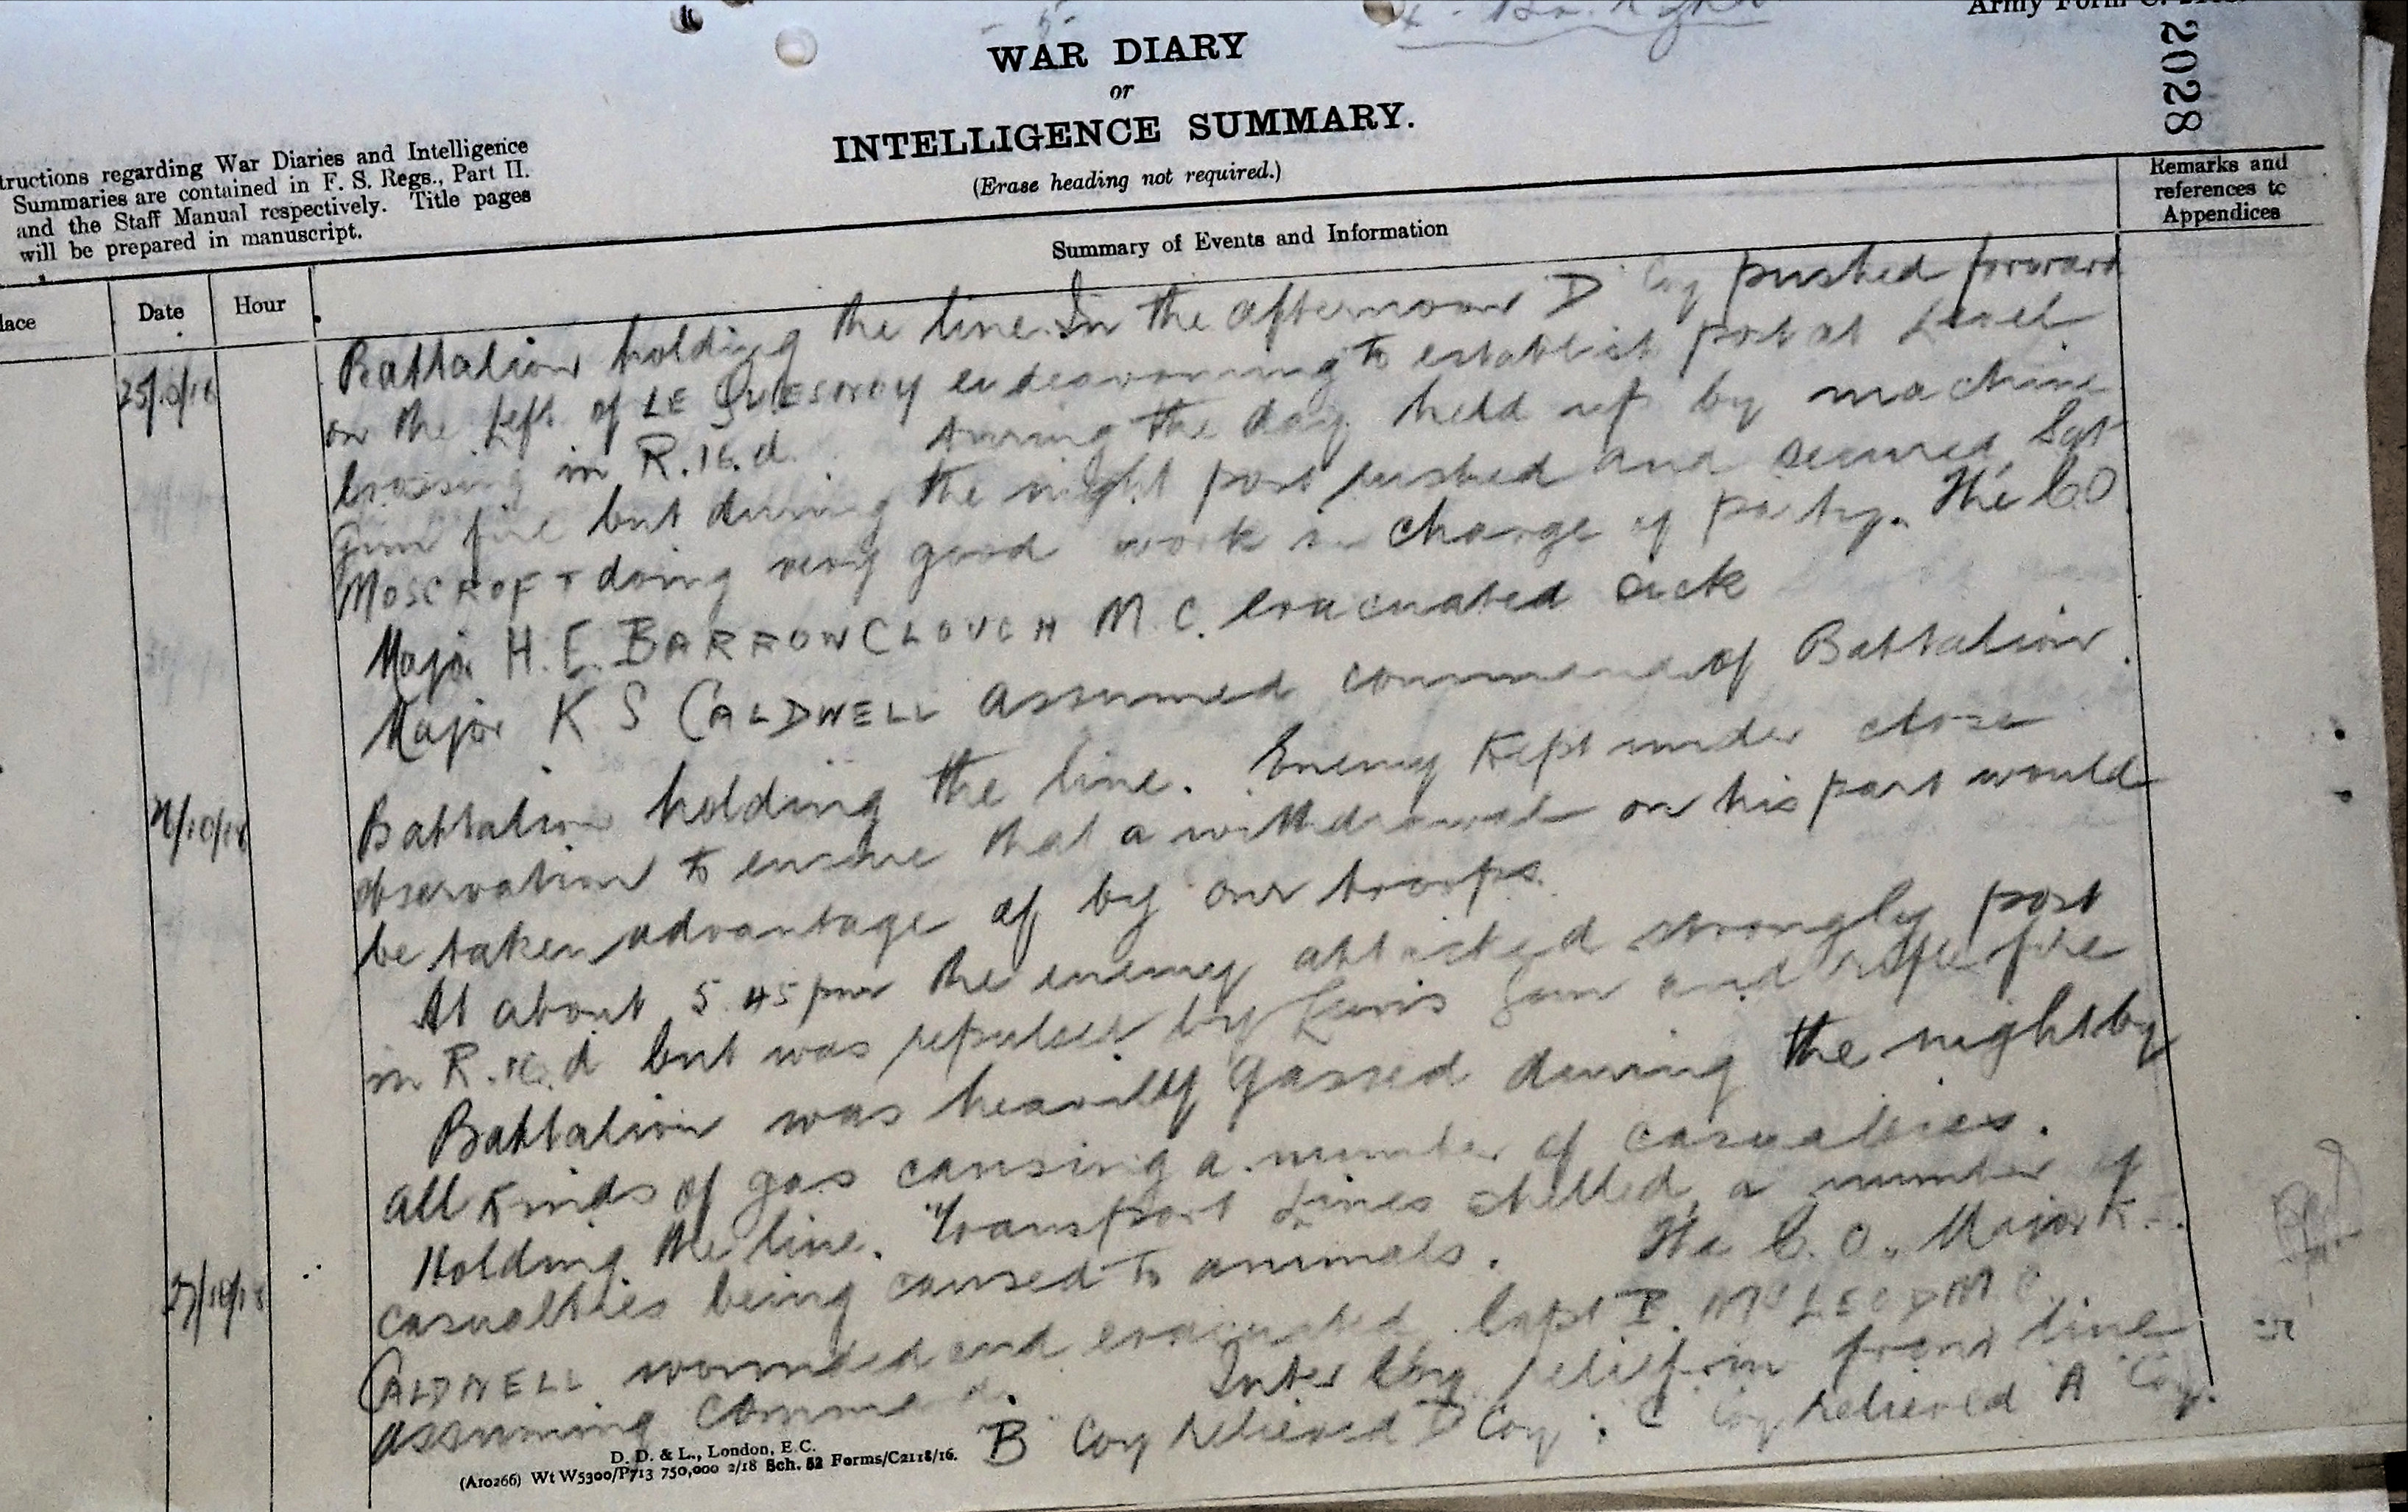 - 5 -
Army Form C.
2028
WAR DIARY
or
INTELLIGENCE SUMMARY.
(Erase heading not required.)
tructions regarding War Diaries and Intelligence
Summaries are contained in F. S. Regs., Part II.
and the Staff Manual respectively. Title pages
will be prepared in manuscript.
Summary of Events and Information
Remarks and
references to
Appendices
lace
Date
Hour
25/10/18
Battalion holding the line. In the afternoon D Coy pushed forward
on the left of LE QUESNOY endeavouring to establish post at Level
Crossing in R.16.d. During the day held up by machine
Gun fire but during the night post pushed and secured, Sgt
MOSCROFT doing very good work in charge of party. The CO
Major H. E. BARROWCLOUGH M.C. evacuated sick
Major K S CALDWELL assumed command of Battalion.
26/10/18
Battalion holding the line. Enemy kept under close
observation to ensure that a withdrawal on his part would
be taken advantage of by our troops.
At about 5.45 pm the enemy attacked strongly post
in R.16.d but was repulsed by Lewis Gun and rifle fire
Battalion was heavily gassed during the night by
all kinds of gas causing a number of casualties.
27/10/18
Holding the line. Transport Lines shelled, a number of
casualties being caused to animals. The C.O. Major K.
CALDWELL wounded and evacuated Capt I. McLEOD M C
assuming command. Inter Coy relief in front line
B Coy relieved D Coy: C Coy relieved A Coy.
D. D. & L., London, E.C.
(A10266) Wt W5300/P713 750,000 2/18 Sch. 52 Forms/C2118/16.